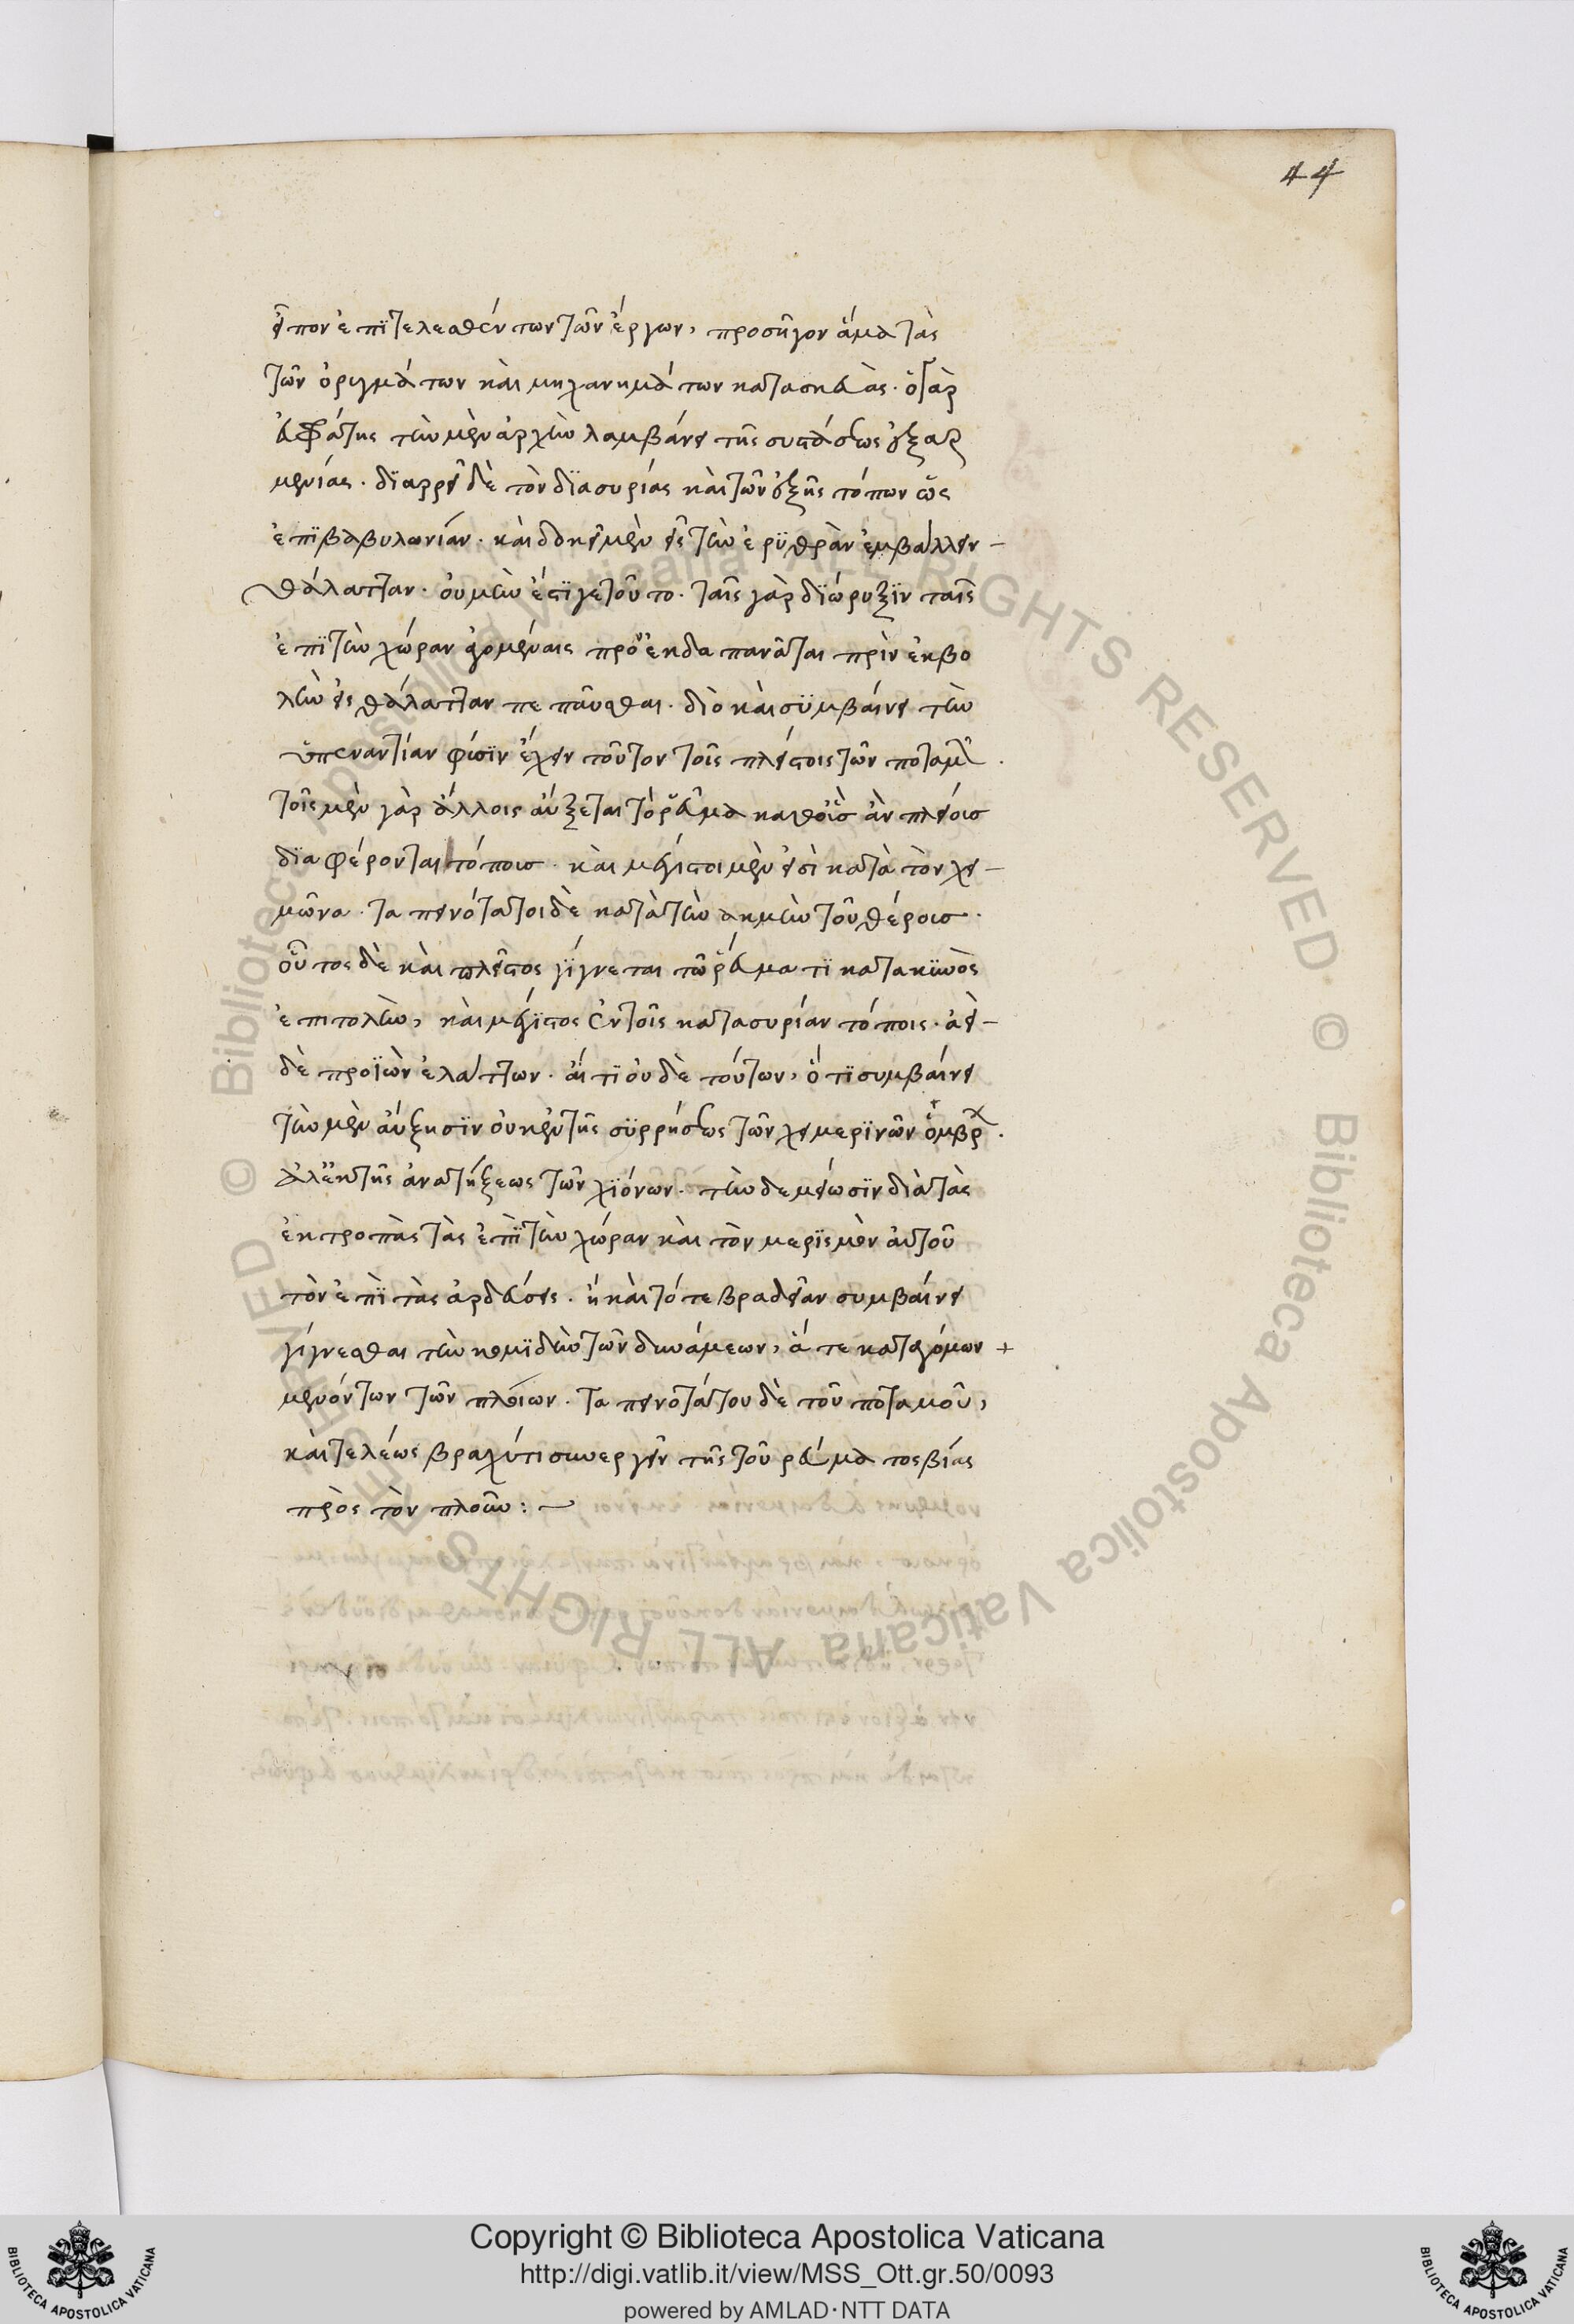 44
εῖπον ἐπϊτελεσθέντων τῶν ἔργων, προσῆγον ἅμα τὰς
τῶν ὀρυγμάτων καὶ μηχανημάτων κατασκευάς. ὁ γὰρ
εὐφράτης τὴν μὲν ἀρχὴν λαμβάνει τῆς συστάσεως ἐξ αρ
μενίας. δϊαρρεῖ δὲ τὸν δϊασυρίας καὶ τῶν ἑξῆς τόπων ὡς
ἐπϊβαβυλωνίαν. καὶ δοκεῖ μὲν εἰς τὴν ἐρϋθρὰν ἐμβάλλειν –
θάλατταν. οὐ μὴν ἔστϊ γε τοῦτο. ταῖς γὰρ δϊώρυξϊν ταῖς
ἐπϊ τὴν χώραν ἀγομέναις προεκδαπανᾶται πρὶν ἐκβο
λὴν εἰς θάλατταν πεποῦσθαι. διὸ καὶ σϋμβαίνει τὴν
ὑπεναντίαν φύσϊν ἔχειν τοῦτον τοῖς πλείστοις τῶν ποταμῶν.
τοῖς μὲν γὰρ ἄλλοις αὔξεται τὸ ῥεῦμα καθ οἷς ἂν πλείοισ
δϊαφέρονται τόποισ. καὶ μέγιστοι μὲν εἰσὶ κατὰ τὸν χει –
μῶνα. ταπεινότατοι δὲ κατὰ τὴν ακμὴν τοῦ θέροισ.
οὗτος δὲ καὶ πλεῖστος γίγνεται τῶ ῥεύματϊ κατα κϋνὸς
ἐπιτολὴν, καὶ μέγϊστος ἐν τοῖς κατασυρίαν τόποις. ἀεὶ –
δὲ προϊὼν ἐλάττων. αἴτϊον δὲ τούτων, ὅτϊ συμβαίνει
τὴν μὲν αὔξησϊν οὐκ ἐκ τῆς σϋρρήσεως τῶν χειμερϊνῶν ὄμβρων.
ἀλλ' ἐκ τῆς ἀνατήξεως τῶν χϊόνων. τὴν δε μείωσϊν διὰ τὰς
ἐκτροπὰς τὰς ἐπϊ τὴν χώραν καὶ τὸν μερϊσμὸν αὐτοῦ
τὸν ἐπϊ τὰς ἀρδεύσεις. ἧ καὶ τότε βραδεῖαν συμβαίνει
γίγνεσθαι τὴν κομϊδὴν τῶν δυνάμεων, ἅτε καταγόμων +
μενόντων τῶν πλοίων. ταπεινοτάτου δὲ τοῦ ποταμοῦ,
καὶ τελέως βραχύτι συνεργεῖν τῆς τοῦ ρεύματος βίας
πρὸς τὸν πλοῦν: –
Copyright © Biblioteca Apostolica Vaticana
http://digi.vatlib.it/view/MSS_Ott.gr.50/0093
powered by AMLAD·NTT DATA